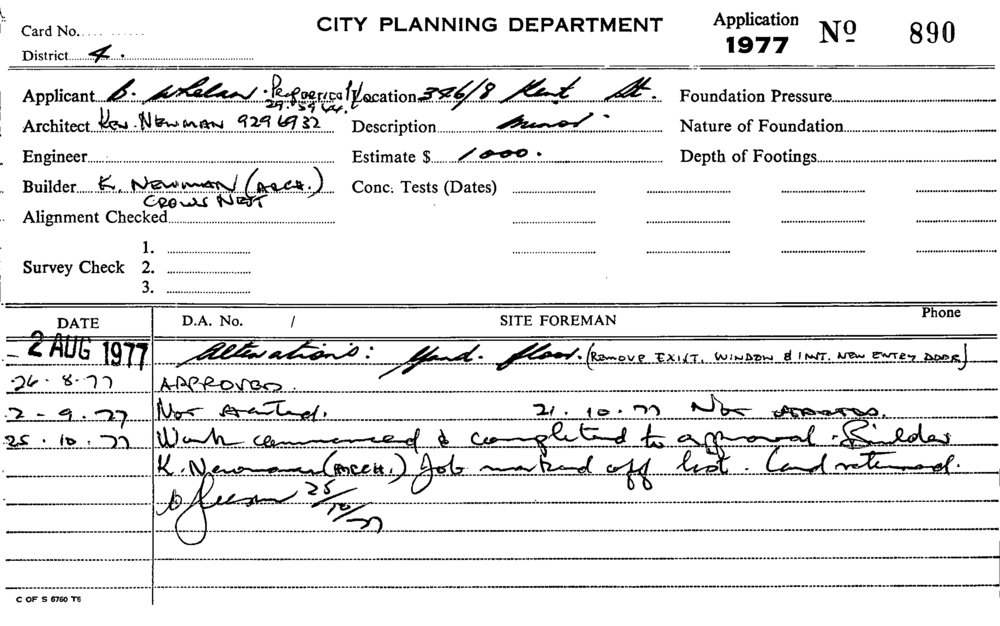 CITY PLANNING DEPARTMENT
Application 1977 Nº 890
Card No.
District 4.
Applicant B. Whelan. Properties P/L Location 346/8 Kent St. Foundation Pressure
29.5944
Architect Ken. Newman 929 6932 Description minor. Nature of Foundation
Engineer Estimate $ 1000. Depth of Footings
Builder K. NEWMAN (ARCH.) Conc. Tests (Dates)
CROWS NEST
Alignment Checked
1.
Survey Check 2.
3.
DATE D.A. No. / SITE FOREMAN Phone
2 AUG 1977 Alterations: Grnd. floor. (REMOVE EXIST. WINDOW & INT. NEW ENTRY DOOR)
26.8.77 APPROVED.
2-9.77 Not started. 21.10.77 Not started.
25.10.77 Work commenced & completed to approval. Builder
K. Newman (ARCH.) Job marked off list. Card returned.
25/10/77
C OF S 6760 T6